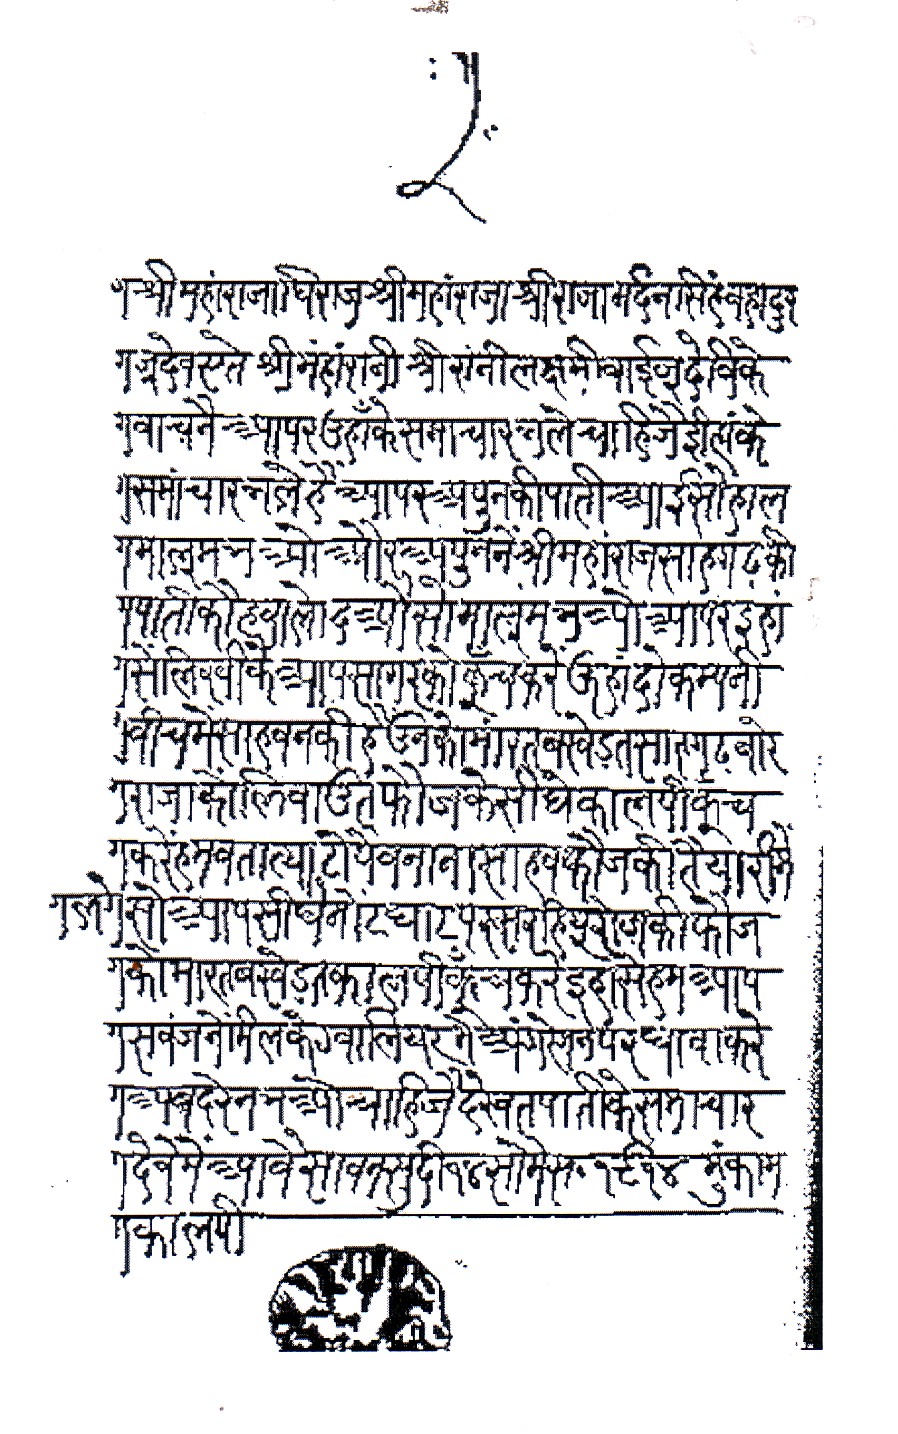 श्री महांराजाधिराज श्री महांराजा श्री राजा मर्दनसिंह वहादुर
जू देव एते श्री महांरानी श्री रांनी लक्षमी वाई जू देवि के
वाचनै आपर उहाँ के समाचार भले चाहिजे ईहां के
समांचार भले हैं आपर अपुन की पाती आई सो हाल
मालूम भओ और अपुन नें श्री महांराज साहगढ़ की
पाती कौ हवालो दओ सो मालूम भओ आपर इहां
सें लिषी कै आप सागर को कूच करें उहां दो कम्पनी
वीच में साहवन की है उनकों मारत वखेड़त साहगढ़ वारे
राजा कों लिवाउत फौज के सीधे कालपी कूंच
करें हम व तात्या टोपे व नाना साहव फौज की तैयारी में
लगे सो आप सीधे नोंट घाट पर सर हियूरोज की फौज
को मारत वखेड़त कालपी कूंच करें इहां से हम आप
सव जने मिलकें ग्वालियर में अंग्रेजन पर धावा करें
अव देर न भओ चाहिजै देखत पाती के समाचार
देवै में आवे सावन सुदी १४ सोमे सं. १९१४ मुकाम
कालपी